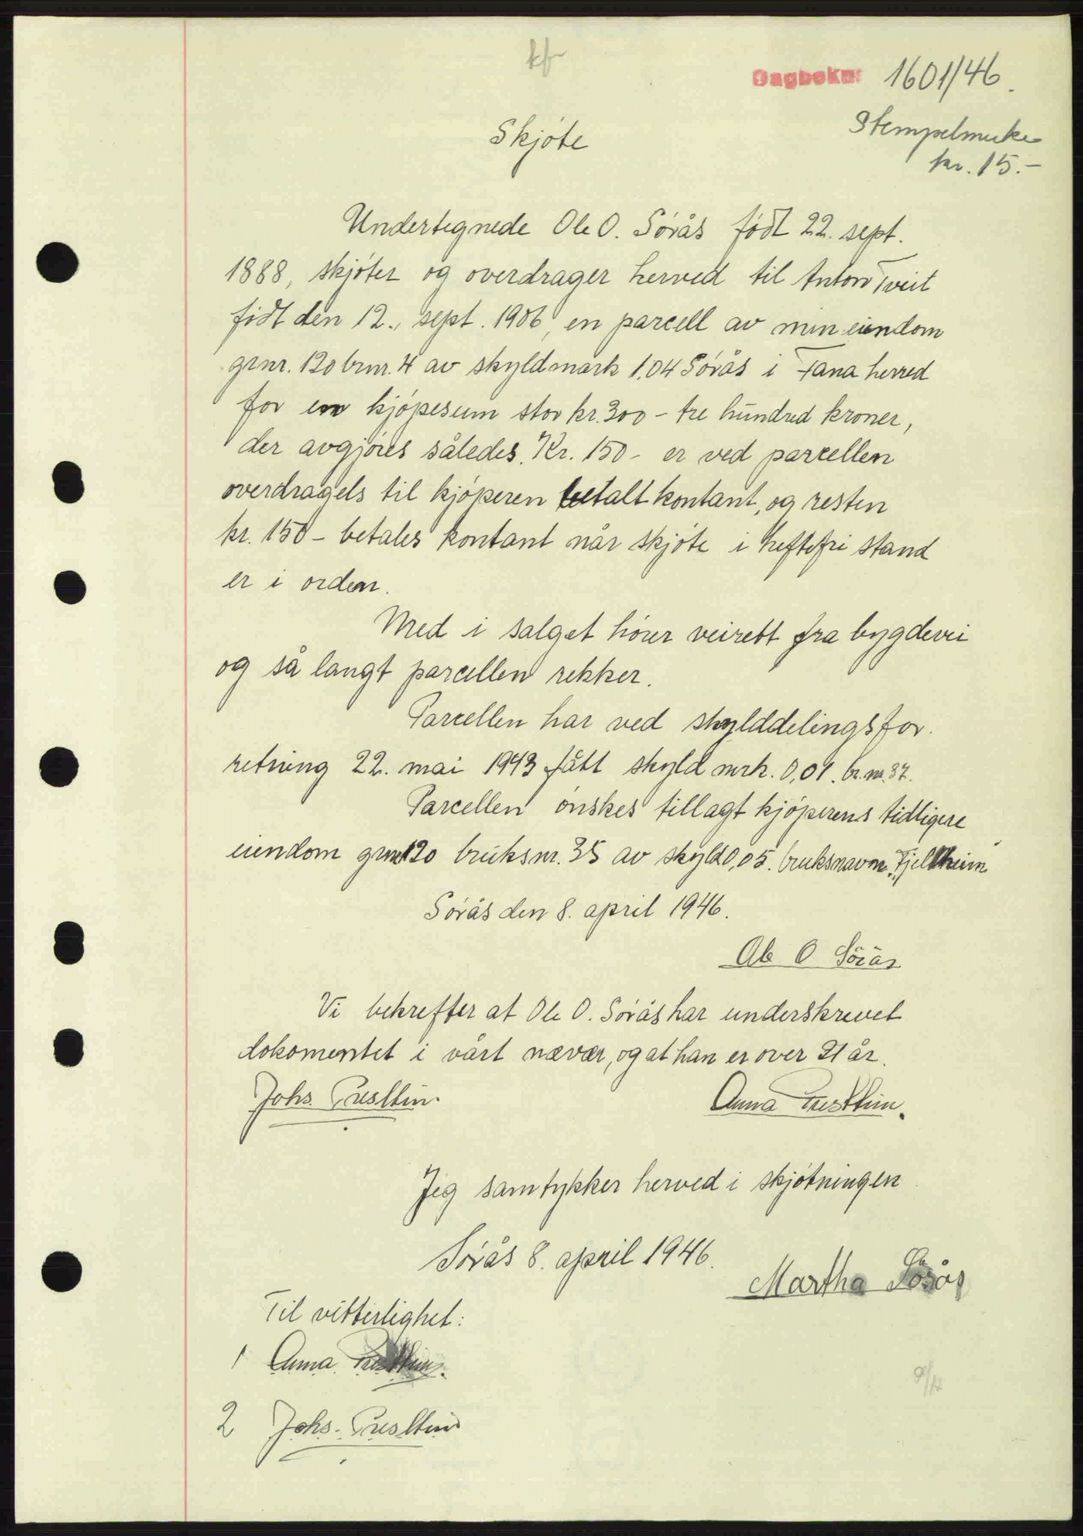 kf
Dagboknr 1601/46.
Stempelmerke
kr. 15.-
Skjøte
Undertegnede Ole O. Sørås født 22. sept.
1888, skjøter og overdrager herved til Anton Tveit
født den 12., sept. 1906, en parcell av min eiendom
grnr. 120 brnr. 4 av skyldmark 1.04 Sørås i Fana herred
for en kjøpesum stor kr. 300 - tre hundred kroner,
der avgjøres således. Kr. 150 - er ved parcellen
overdragels til kjøperen betalt kontant, og resten
kr. 150 - betales kontant når skjøte i heftefri stand
er i orden.
Med i salget hører veirett fra bygdevei
og så langt parcellen rekker.
Parcellen har ved skylddelingsfor-
retning 22. mai 1943 fått skyld mrk. 0,01. br. nr. 37.
Parcellen ønskes tillagt kjøperens tidligere
eiendom grnr 120 bruksnr. 35 av skyld 0,05. bruksnavn "Fjellheim"
Sørås den 8. april 1946.
Ole O Sørås
Vi bekrefter at Ole O. Sørås har underskrevet
dokomentet i vårt nævær, og at han er over 21 år.
Johs. Presttun. Anna Presttun.
Jeg samtykker herved i skjøtningen
Sørås 8. april 1946.
Martha Sørås
Til vitterlighet:
1 Anna Presttun.
2 Johs. Presttun